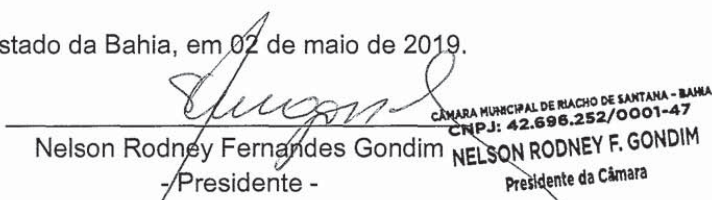 stado da Bahia, em 02 de maio de 2019.
Nelson Rodney Fernandes Gondim
- Presidente -
CÂMARA MUNICIPAL DE RIACHO DE SANTANA - BAHIA
CNPJ: 42.696.252/0001-47
NELSON RODNEY F. GONDIM
Presidente da Câmara